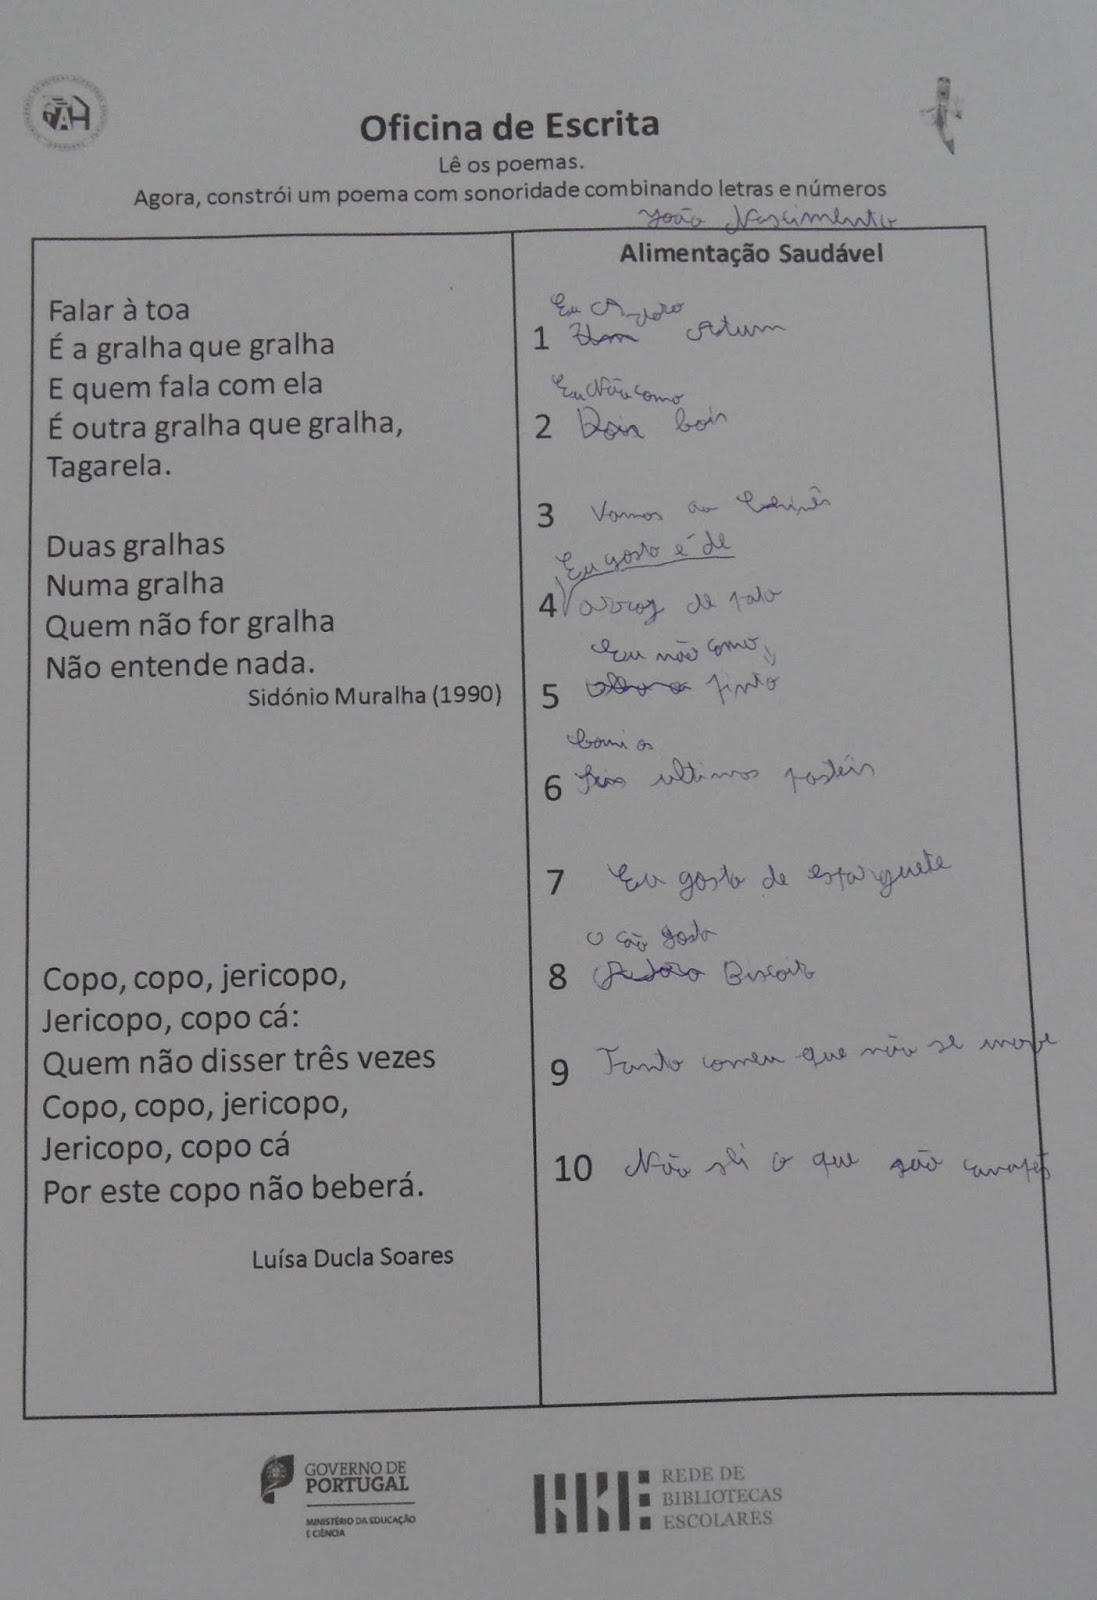 Oficina de Escrita
Lê os poemas.
Agora, constrói um poema com sonoridade combinando letras e números
João Nascimento
Falar à toa
É a gralha que gralha
E quem fala com ela
É outra gralha que gralha,
Tagarela.
Duas gralhas
Numa gralha
Quem não for gralha
Não entende nada.
Sidónio Muralha (1990)
Copo, copo, jericopo,
Jericopo, copo cá:
Quem não disser três vezes
Copo, copo, jericopo,
Jericopo, copo cá
Por este copo não beberá.
Luísa Ducla Soares
Alimentação Saudável
Eu Adoro
1 Atum
Eu Não como
2 Dois bois
3 Vamos ao chinês
Eu gosto é de
4 arroz de pato
Eu não como
5 pinto
Comi os
6 Seis ultimos pasteis
7 Eu gosto de esparguete
O cão gosta
8 Biscoito
9 Tanto comeu que não se move
10 Não sei o que são canapés
GOVERNO DE
PORTUGAL
MINISTÉRIO DA EDUCAÇÃO
E CIÊNCIA
REDE DE
BIBLIOTECAS
ESCOLARES